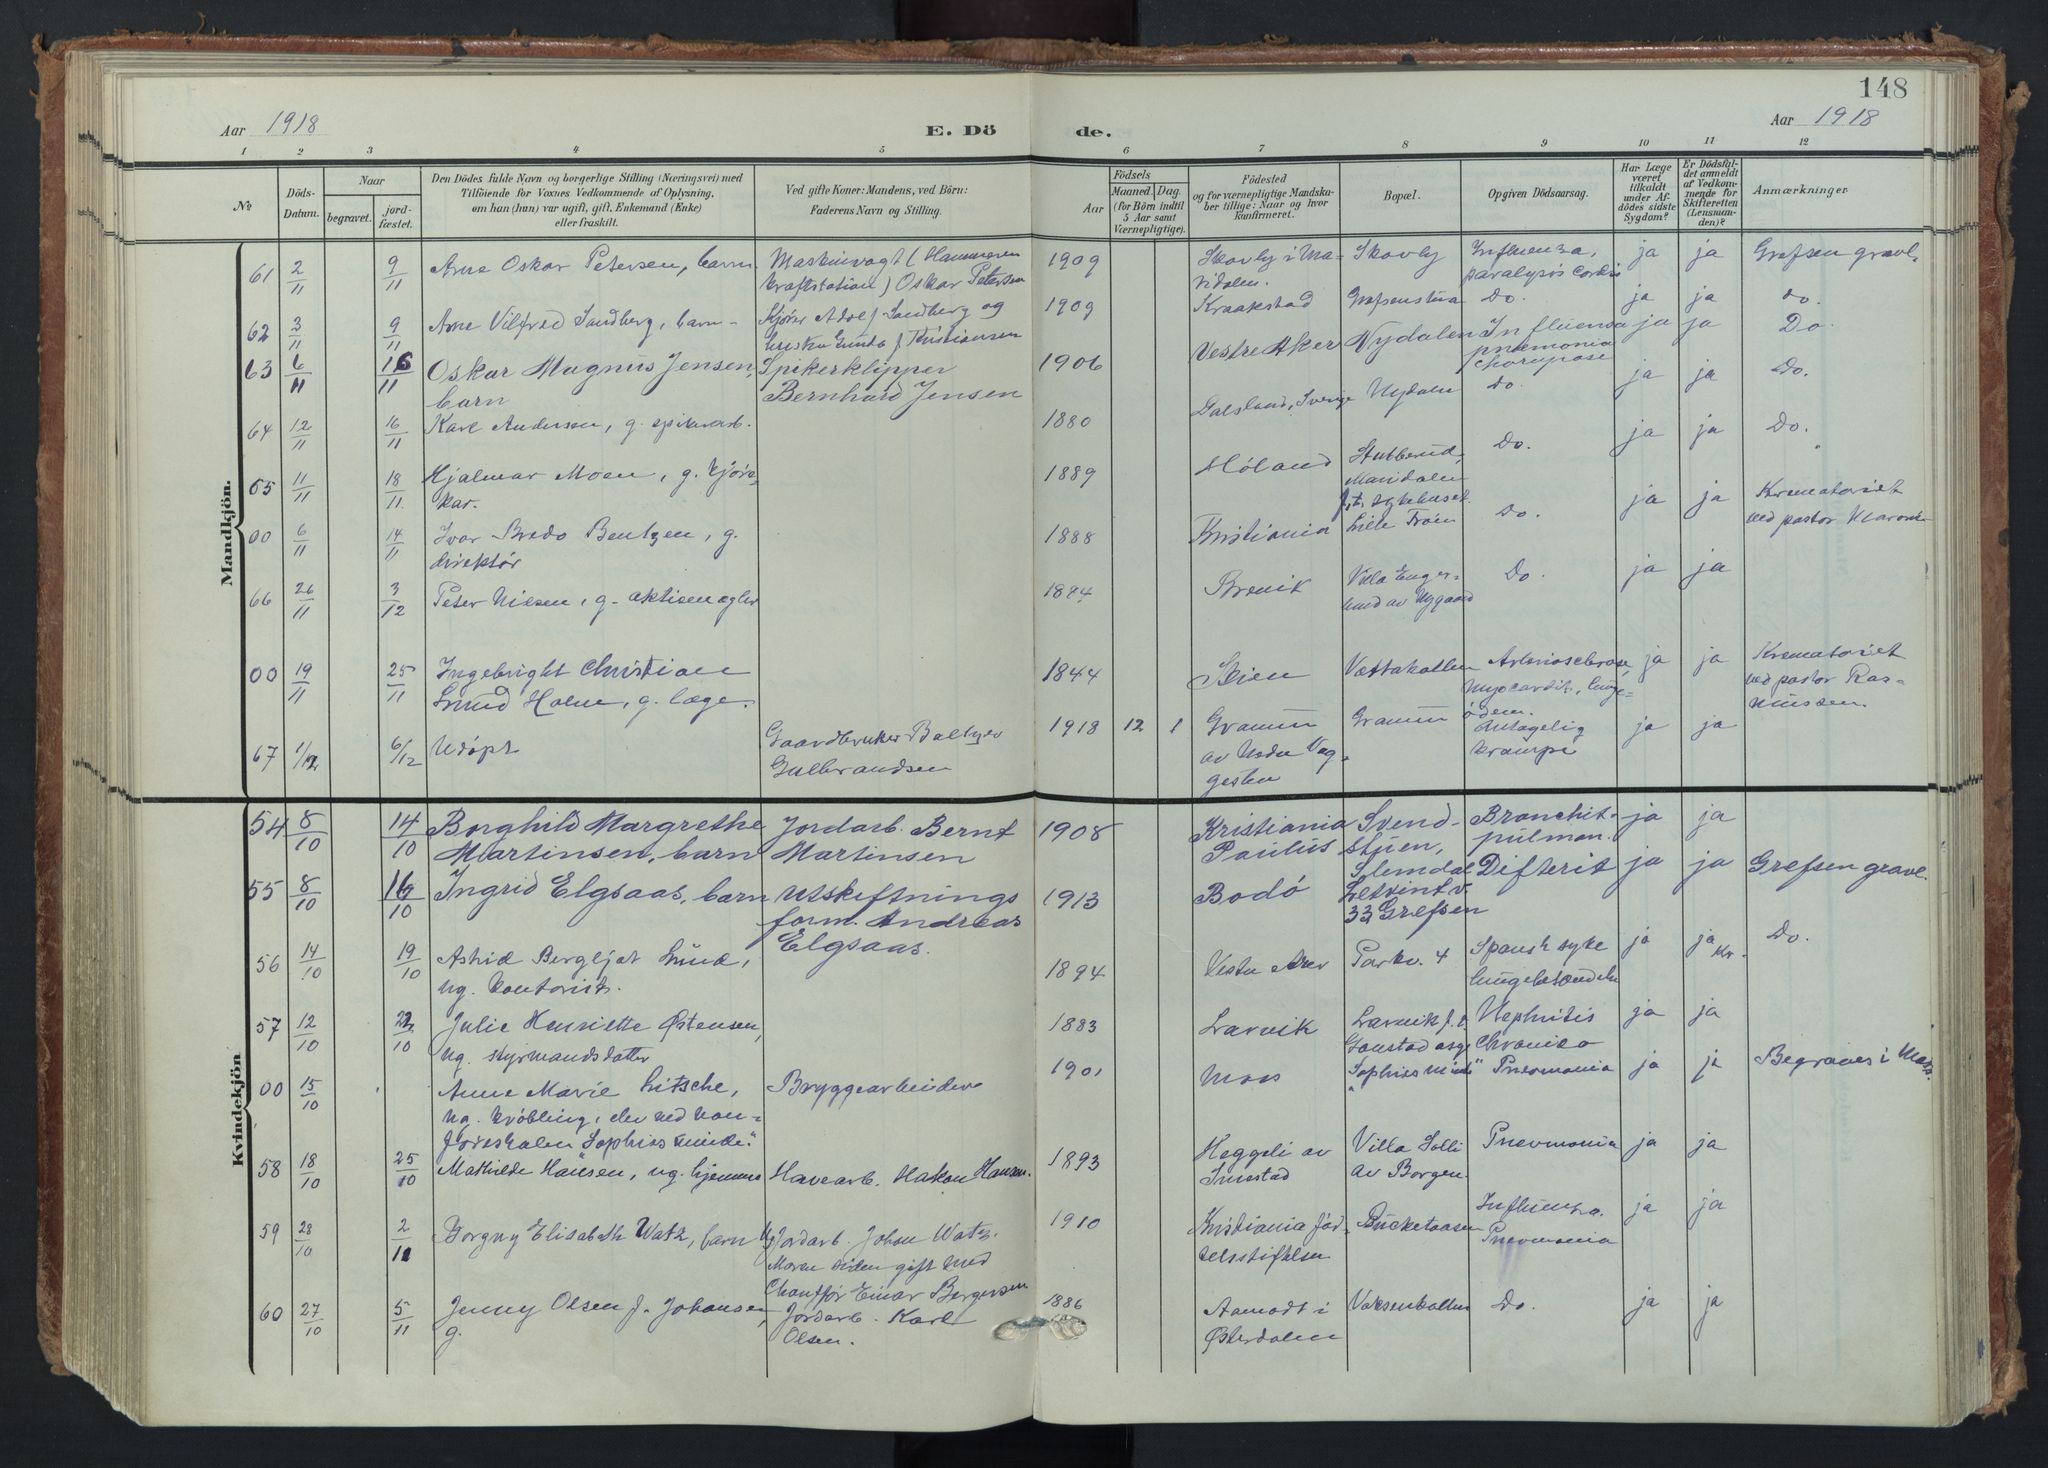 148
Aar 1918
E. Dö
de.
Aar 1918
1 2 3 4 5 6 7 8 9 10 11 12
№
Döds-Datum.
Naar
begravet.
jordfæstet.
Den Dödes fulde Navn og borgerlige Stilling (Næringsvei) med
Tilföiende for Voxnes Vedkommende af Oplysning,
om han (hun) var ugift, gift, Enkemand (Enke)
eller fraskilt.
Ved gifte Koner: Mandens, ved Börn:
Faderens Navn og Stilling.
Födsels
Aar
Maaned. Dag.
(for Börn indtil
5 Aar samt
Værnepligtige).
Födested
og for værnepligtige Mandska-
ber tillige: Naar og hvor
konfirmeret.
Bopæl.
Opgiven Dödsaarsag.
Har Læge
været
tilkaldt
under Af-
dödes sidste
Sygdom?
Er Dödsfal-
det anmeldt
af Vedkom-
mende for
Skifteretten
(Lensman-
den)?
Anmærkninger
Mandkjön.
61 2/11 9/11 Arne Oskar Petersen, barn Maskinvagt (Hammeren
kraftstation) Oskar Petersen 1909 Skovly i Ma-
ridalen. Skovly Influenza,
paralysis cordis ja ja Grefsen gravl.
62 3/11 9/11 Arne Vilfred Sandberg, barn Kjører Adolf Sandberg og
hustru Gunda f. Kristiansen 1909 Kraakstad Grefsenstua Do. ja ja do.
63 6/11 16/11 Oskar Magnus Jensen,
barn Spikerklipper
Bernhard Jensen 1906 Vestre Aker Nydalen Influensa
pnemonia
ja ja Do.
64 12/11 16/11 Karl Andersen, g. spikerarb. 1880 Sverige Nydalen Do. ja ja Do.
65 11/11 18/11 Hjalmar Moen, g. kjøre-
kar. 1889 Høland Stubberud,
Maridalen
f. t. sykehuset Do. ja ja Do.
00 6/11 14/11 Ivar Bredo Bentzen, g.
direktør 1888 Kristiania Lille Frøen Do. ja ja Krematoriet
ved pastor
66 26/11 3/12 Peter Nilsen, g. aktisemegler 1894 Brevik Villa Enger-
lund av Nygaard Do. ja ja
00 19/11 25/11 Ingebright Christian
Lund Holm, g. læge. 1844 Skien Vettakollen Arteriosclerose,
Myocardit, lunge-
ödem. ja ja Krematoriet
ved pastor Ras-
mussen.
67 1/12 6/12 Udöpt Gaardbruker Baltzer
Gulbrandsen 1918 12 1 Gramum
av Nedre Vag-
gesten Gramum Antagelig
krampe ja ja
Kvindekjön.
54 8/10 14/10 Borghild Margrethe
Martinsen, barn Jordarb. Bernt
Martinsen 1908 Kristiania
Paulus Svend-
stuen,
Slemdal Bronchit-
pulmon. ja ja
55 8/10 16/10 Ingrid Elgsaas, barn Utskiftnings
form. Andreas
Elgsaas. 1913 Bodö
33, Grefsen Difterit ja ja Grefsen gravl.
56 14/10 19/10 Astrid Bergljot Lund,
ug. kontorist. 1894 Vestre Aker Parkv. 4 Spansk syke
lungebetændelse ja ja Kr. Do.
57 12/10 22/10 Julie Henriette Østensen,
ug. styrmandsdatter 1883 Larvik Larvik f. t.
Gaustad asyl Nephritis
Chronica ja ja
00 15/10 Anne Marie Litsche,
ug. krøbling, elev ved
"Sophies minde". Bryggearbeider 1901 Moss "Sophies Minde" Pnevmonia ja ja Begraves i Moss.
58 18/10 25/10 Mathilde Hansen, ug. hjemme Havearb. Hakon Hansen. 1893 Heggeli av
Smestad Villa Solli
av Borgen. Pnevmonia ja ja
59 28/10 2/11 Borgny Elisabeth Watz, barn Jordarb. Johan Watz.
Moren siden gift med
Chauffør Einar Bergersen 1910 Kristiania fød-
selsstiftelse Bücketaasen Influenza.
Pnevmonia ja ja
60 27/10 5/11 Jenny Olsen f. Johansen,
g. Jordarb. Karl
Olsen. 1886 Aamodt i
Østerdalen Voksenkollen Do. ja ja